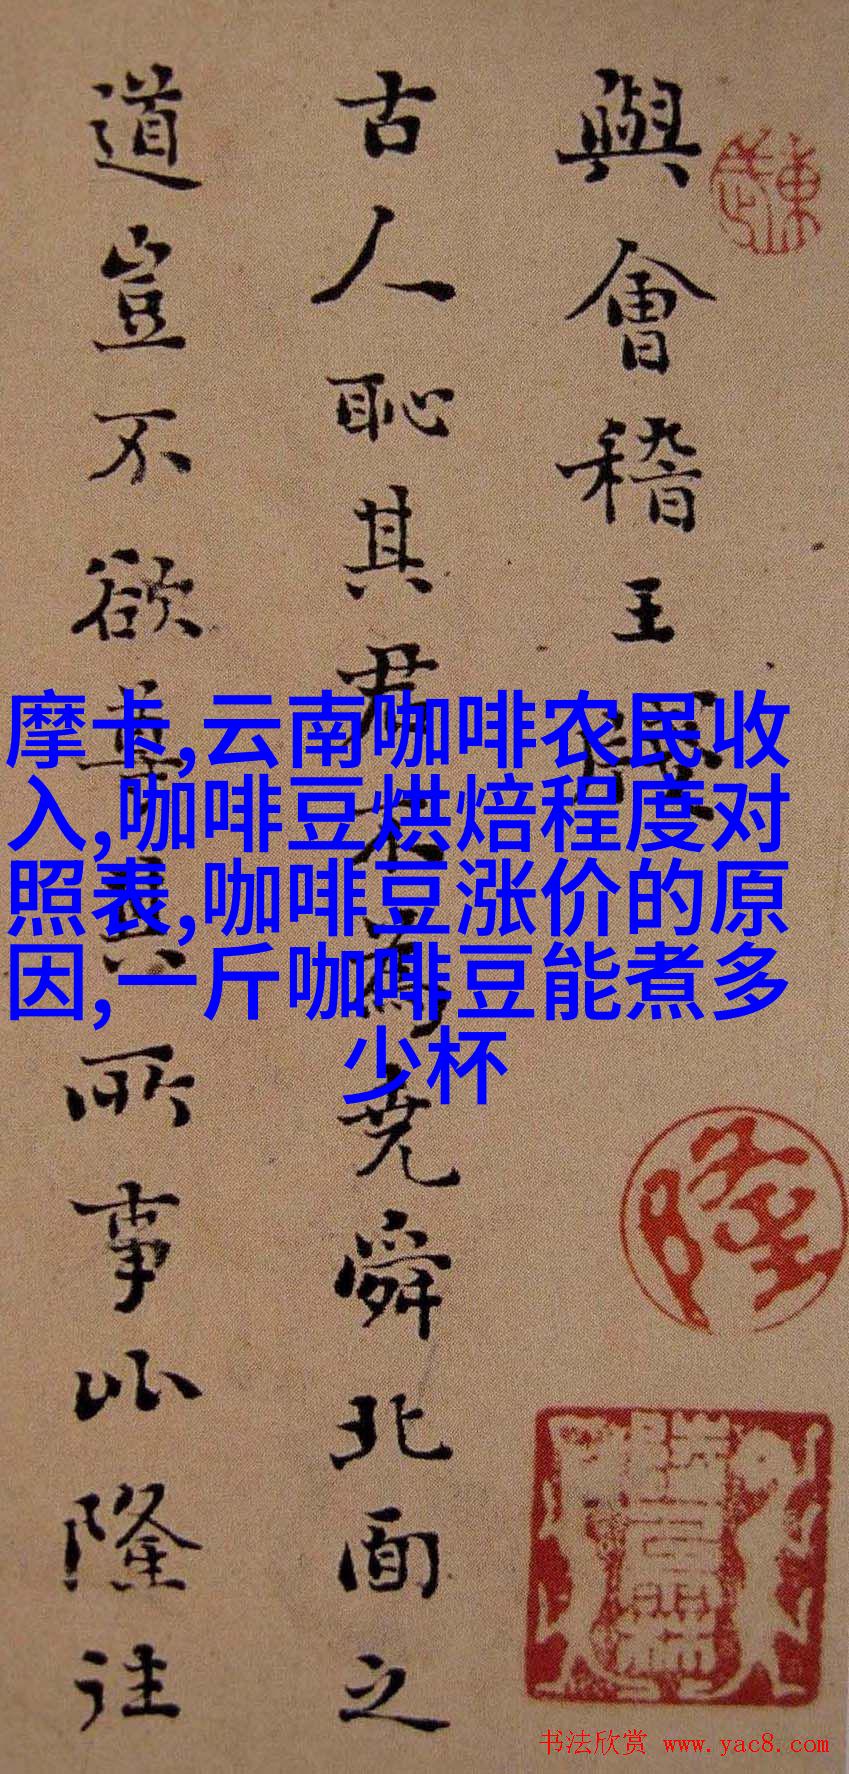 與會稽王牋
古人恥其君不為堯舜北面之
道豈不欲尊其所事比隆往
摩卡,云南咖啡农民收
入,咖啡豆烘焙程度对
照表,咖啡豆涨价的原
因,一斤咖啡豆能煮多
少杯
隆
书法欣赏 www.yac8.com